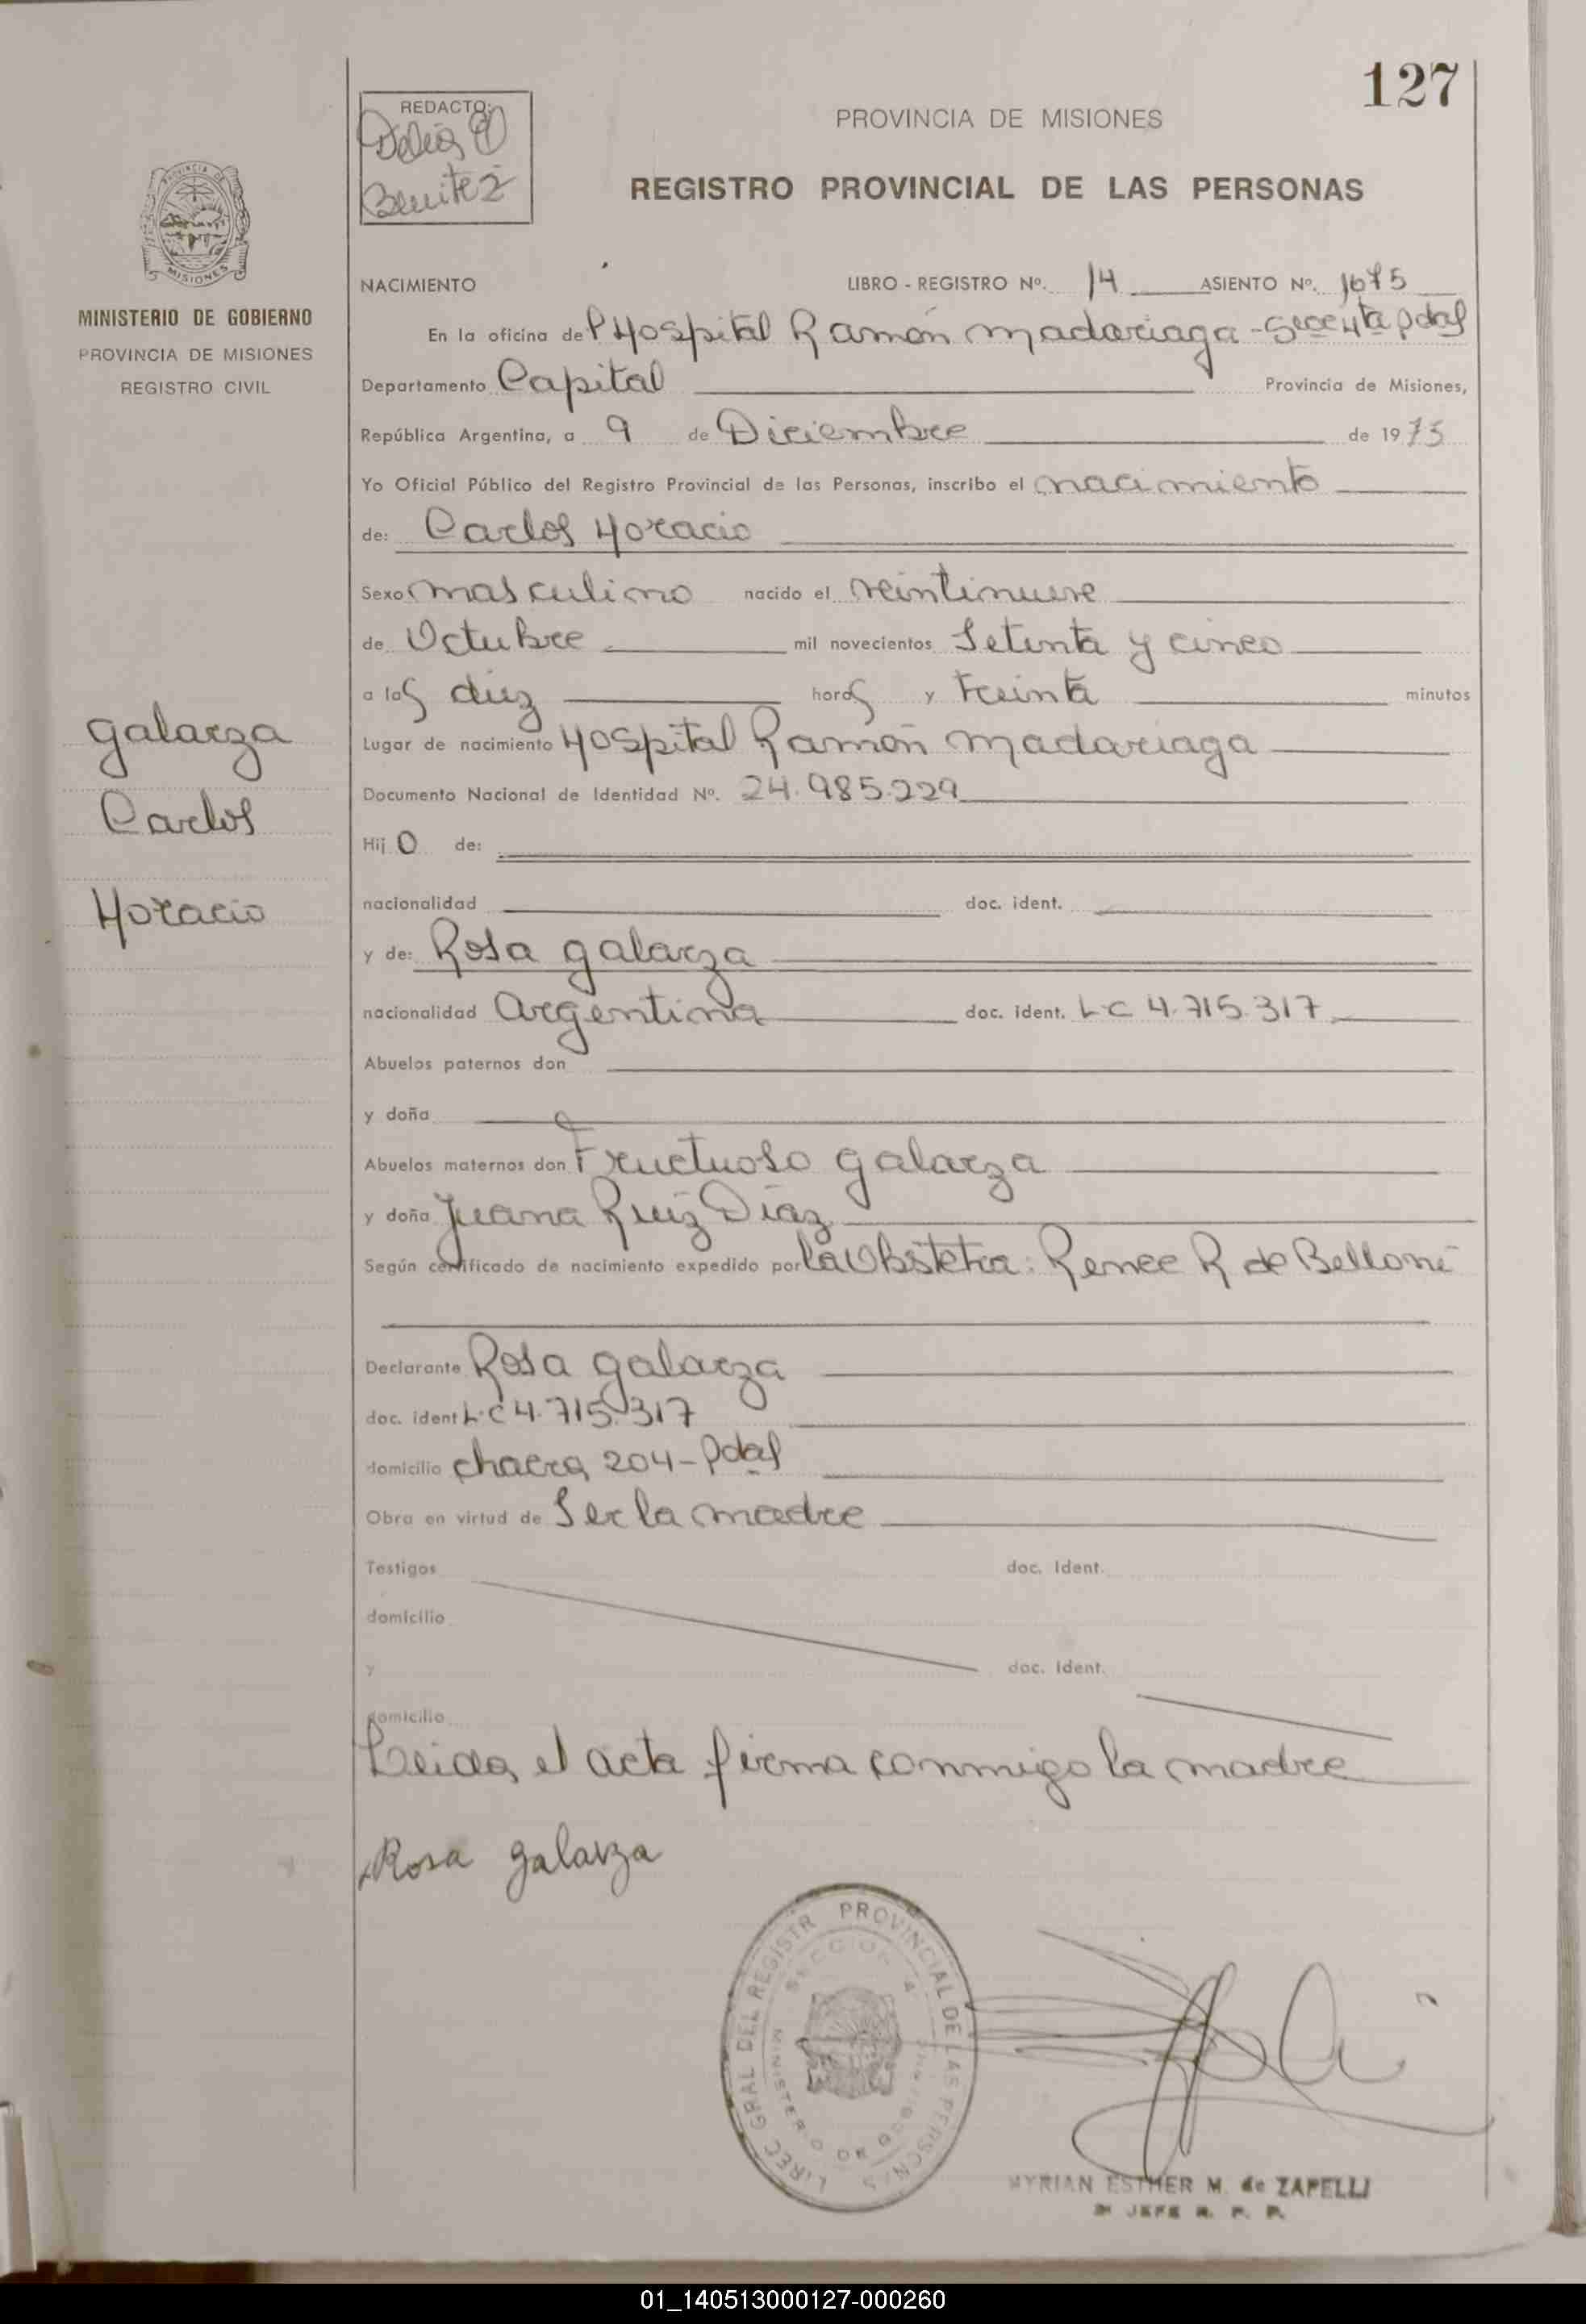 127
REDACTO:
Delia
Benitez
PROVINCIA DE MISIONES
REGISTRO PROVINCIAL DE LAS PERSONAS
PROVINCIA DE
MISIONES
MINISTERIO DE GOBIERNO
PROVINCIA DE MISIONES
REGISTRO CIVIL
NACIMIENTO LIBRO - REGISTRO Nº. 14 ASIENTO Nº. 1675
En la oficina del Hospital Ramón Madariaga - Secc 4ta Pdas
Departamento Capital Provincia de Misiones,
República Argentina, a 9 de Diciembre de 1975
Yo Oficial Público del Registro Provincial de las Personas, inscribo el nacimiento
de: Carlos Horacio
Sexo masculino nacido el veintinueve
de Octubre mil novecientos Setenta y cinco
a las diez horas y treinta minutos
Galarza
Carlos
Horacio
Lugar de nacimiento Hospital Ramón Madariaga
Documento Nacional de Identidad Nº. 24.985.229
Hijo de:
nacionalidad doc. ident.
y de: Rosa Galarza
nacionalidad Argentina doc. ident. L-C 4.715.317
Abuelos paternos don
y doña
Abuelos maternos don Fructuoso Galarza
y doña Juana Ruiz Diaz
Según certificado de nacimiento expedido por la Obstetra: Renee R de Belloni
Declarante Rosa Galarza
doc. ident L-C 4.715.317
domicilio chacra 204 - Pdas
Obra en virtud de Ser la madre
Testigos doc. Ident.
domicilio
y doc. Ident.
domicilio
Leida el acta firma conmigo la madre
Rosa Galarza
DIREC GRAL DEL REGISTR PROVINCIAL DE LAS PERSONAS
SECCION 4
MINISTERIO DE GOBIERNO
MYRIAN ESTHER M. de ZAPELLI
JEFE R. P. P.
01_140513000127-000260